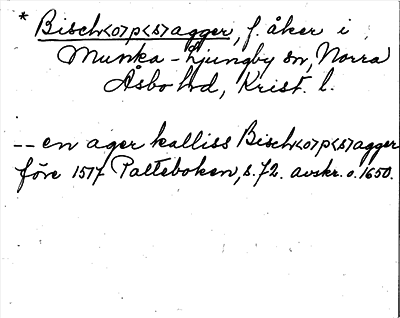 * Bisch<o>p<s>agger, f. åker i
Munka-Ljungby sn, Norra
Åsbo hd, Krist. l.
-- en ager kalliss Bisch<o>p<s>agger
före 1517 Palteboken, s. 72. avskr. o. 1650.